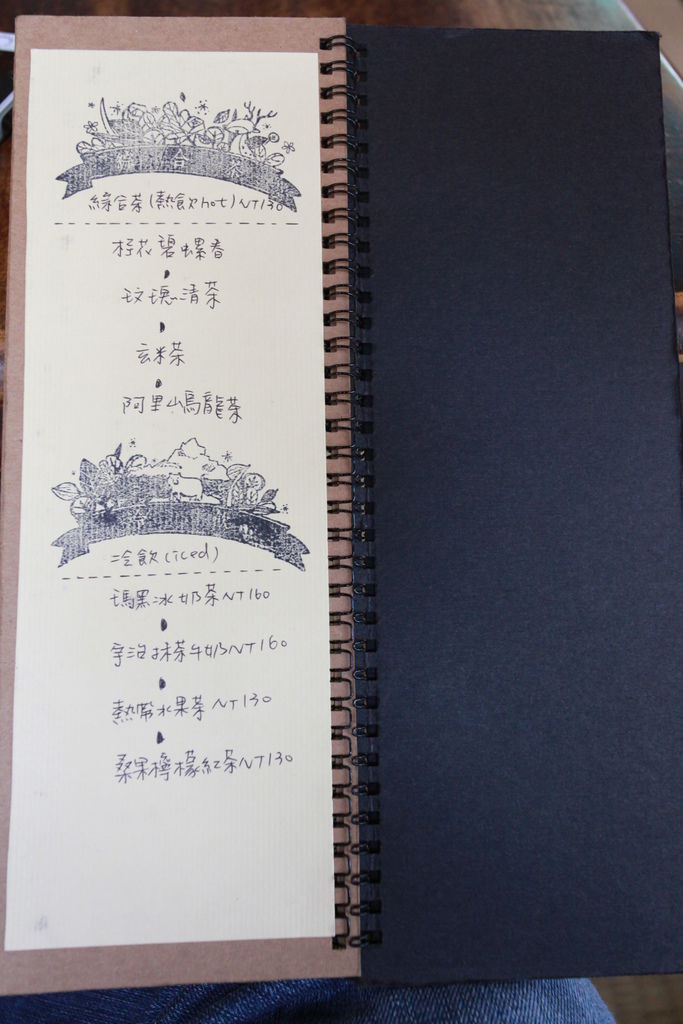 綜合茶
綜合茶(熱飲hot)NT130
桂花碧螺春
玫瑰清茶
玄米茶
阿里山烏龍茶
冷飲(iced)
瑪黑冰奶茶NT160
宇治抹茶牛奶NT160
熱帶水果茶NT130
桑果檸檬紅茶NT130